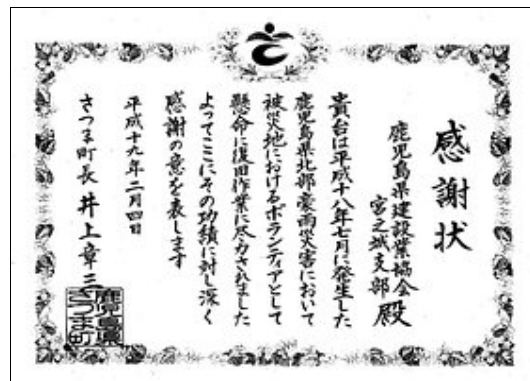 感謝状
鹿児島県建設業協会
宮之城支部 殿
貴台は平成十八年七月に発生した
鹿児島県北部豪雨災害において
被災地におけるボランティアとして
懸命に復旧作業に尽力されました
よってここにその功績に対し深く
感謝の意を表します
平成十九年二月四日
さつま町長 井上章三
鹿児島県
さつま町